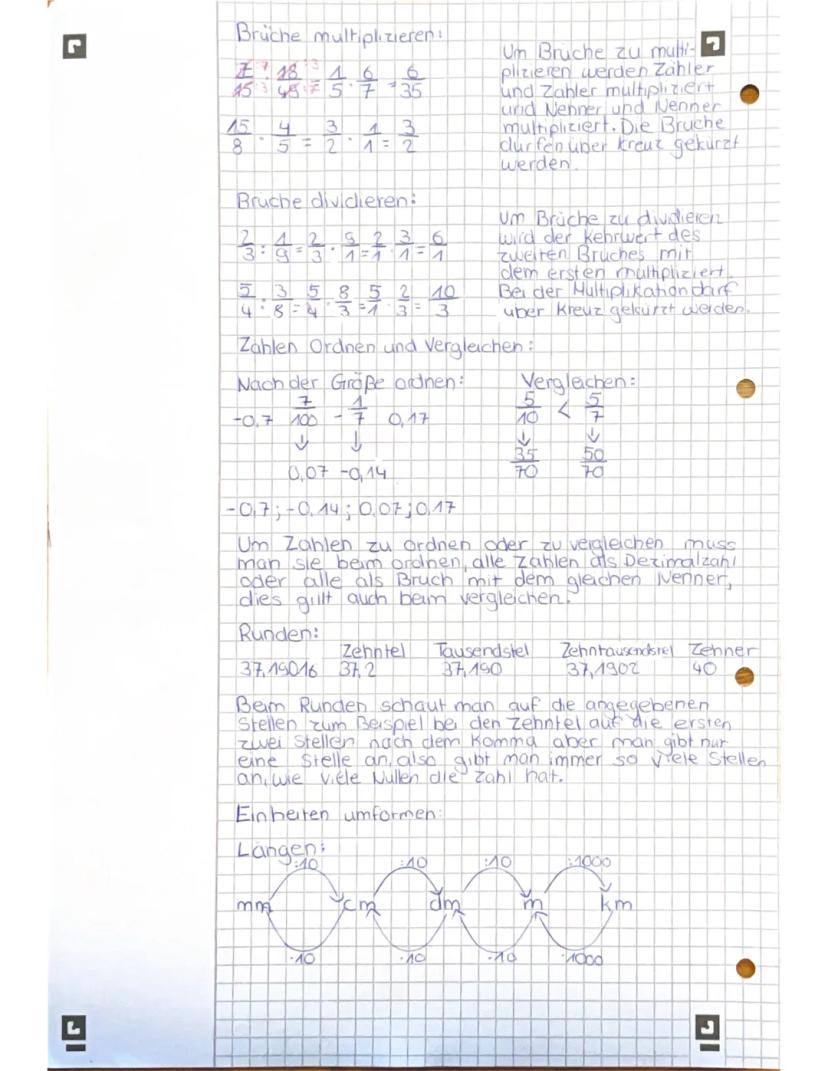 Brüche multiplizieren:
7/15 · 18/49 = 1/5 · 6/7 = 6/35
15/8 · 4/5 = 3/2 · 1/1 = 3/2
Um Brüche zu multi-
plizieren werden Zähler
und Zähler multipliziert
und Nenner und Nenner
multipliziert. Die Brüche
dürfen über Kreuz gekürzt
werden.
Brüche dividieren:
2/3 : 1/9 = 2/3 · 9/1 = 2/1 · 3/1 = 6/1
5/4 : 3/8 = 5/4 · 8/3 = 5/1 · 2/3 = 10/3
Um Brüche zu dividieren
wird der Kehrwert des
zweiten Bruches mit
dem ersten multipliziert.
Bei der Multiplikation darf
über Kreuz gekürzt werden.
Zahlen Ordnen und Vergleichen:
Nach der Größe ordnen:
-0,7 7/100 -1/7 0,17
↓ ↓
0,07 -0,14
-0,7; -0,14; 0,07; 0,17
Vergleichen:
5/10 < 5/7
↓ ↓
35/70 50/70
Um Zahlen zu ordnen oder zu vergleichen muss
man sie beim ordnen, alle Zahlen als Dezimalzahl
oder alle als Bruch mit dem gleichen Nenner,
dies gillt auch beim vergleichen.
Runden:
Zehntel Tausendstel Zehntausendstel Zehner
37,19016 37,2 37,190 37,1902 40
Beim Runden schaut man auf die angegebenen
Stellen zum Beispiel bei den Zehntel auf die ersten
zwei Stellen nach dem Komma aber man gibt nur
eine Stelle an, also gibt man immer so viele Stellen
an, wie viele Nullen die Zahl hat.
Einheiten umformen:
Längen:
:10 :10 :10 :1000
mm cm dm m km
·10 ·10 ·10 ·1000